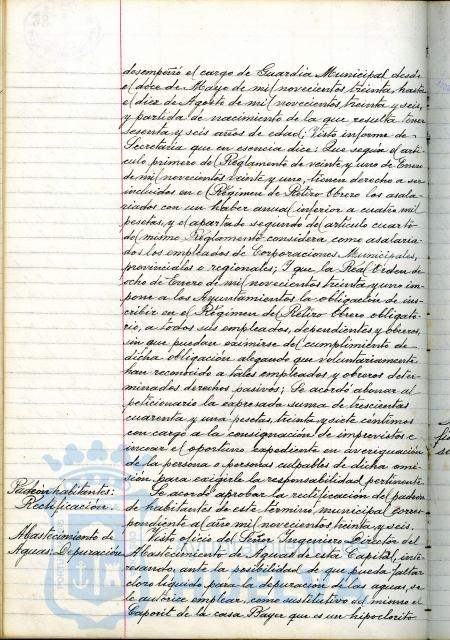 desempeñó el cargo de Guardia Municipal desde
el doce de Mayo de mil novecientos treinta, hasta
el diez de Agosto de mil novecientos treinta y seis,
y partida de nacimiento de la que resulta tener
sesenta y seis años de edad; Visto informe de
Secretaría que en esencia dice: Que según el artí-
culo primero del Reglamento de veinte y uno de Enero
de mil novecientos veinte y uno, tienen derecho a ser
incluidos en el Régimen de Retiro Obrero los asala-
riados con un haber anual inferior a cuatro mil
pesetas, y el apartado segundo del artículo cuarto
del mismo Reglamento considera como asalaria-
dos los empleados de Corporaciones Municipales,
provinciales o regionales; Y que la Real Orden de
ocho de Enero de mil novecientos treinta y uno im-
pone a los Ayuntamientos la obligación de ins-
cribir en el Régimen del Retiro Obrero obligato-
rio, a todos sus empleados, dependientes y obreros,
sin que puedan eximirse del cumplimiento de
dicha obligación alegando que voluntariamente
han reconocido a tales empleados y obreros deter-
minados derechos pasivos; Se acordó abonar al
peticionario la expresada suma de trescientas
cuarenta y una pesetas, treinta y siete céntimos
con cargo a la consignación de imprevistos e
incoar el oportuno expediente en averiguación
de la persona o personas culpables de dicha omi-
sión para exigirle la responsabilidad pertinente.
Padrón habitantes:
Rectificación.
Se acordó aprobar la rectificación del padrón
de habitantes de este término municipal corres-
pondiente al año mil novecientos treinta y seis.
Abastecimiento de
Aguas: Depuración
Visto oficio del Señor Ingeniero Director del
Abastecimiento de Aguas de esta Capital, inte-
resando, ante la posibilidad de que pueda faltar
cloro líquido para la depuración de las aguas, se
le autorice emplear, como sustitutivo del mismo el
Caporit de la casa Bayer que es un hipoclorito